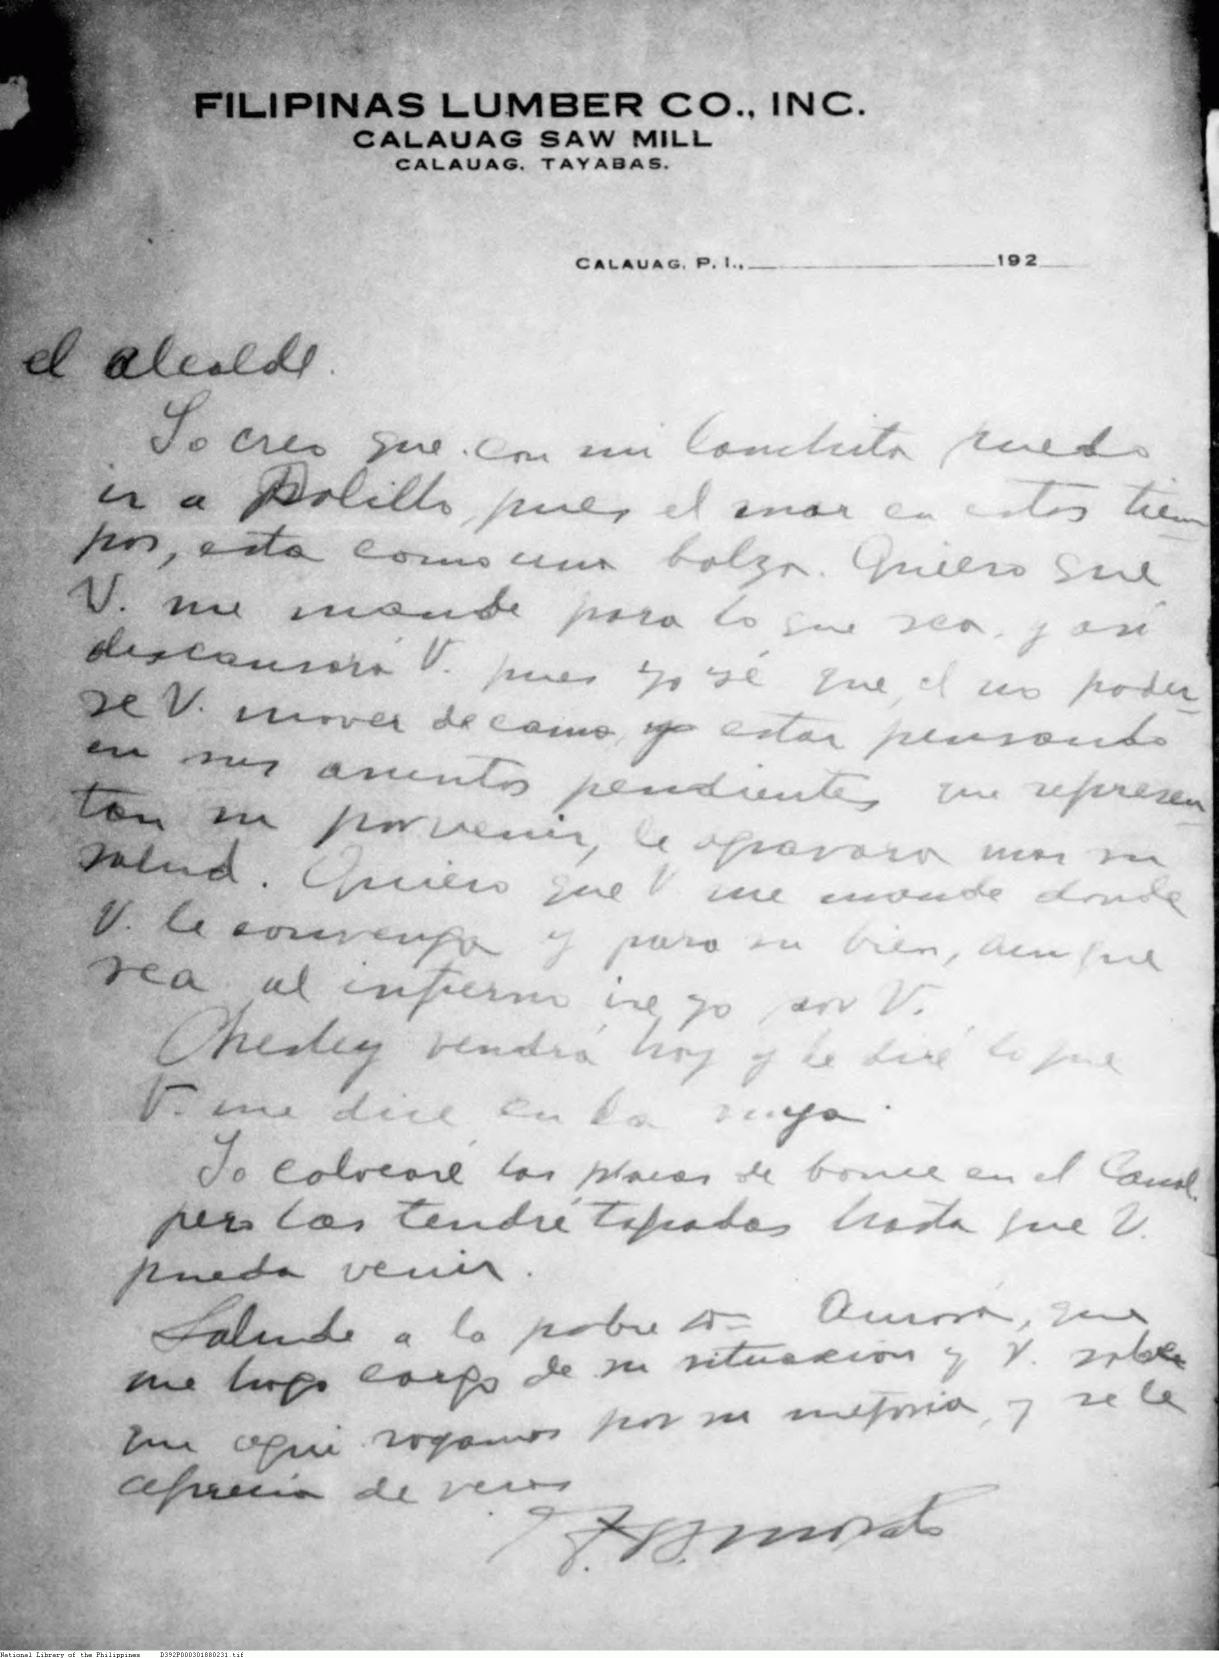 FILIPINAS LUMBER CO., INC.
CALAUAG SAW MILL
CALAUAG, TAYABAS.
CALAUAG, P. I., 192
el alcalde.
Yo creo que con mi lanchita puedo
ir a Polillo, pues el mar en estos tiem
pos, esta como una balza. Quiero que
V. me mande para lo que sea, y asi
descansará V. pues yo sé que, el no poder
se V. mover de cama, y estar pensando
en sus asuntos pendientes que represen
tan su porvenir, le agravara mas su
salud. Quiero que V. me mande donde
V. le convenga y para su bien, aunque
sea al infierno iré yo por V.
Chesley vendrá hoy y le diré lo que
V. me dice en la suya.
Yo colocaré las placas de bonce en el Canal.
pero las tendré tapadas hasta que V.
pueda venir.
Salude a la pobre Da Aurora, que
me hago cargo de su situacion y V. sabe
que aqui rogamos por su mejoria, y se le
aprecia de veras
Morato
National Library of the Philippines D392P000301880231.tif